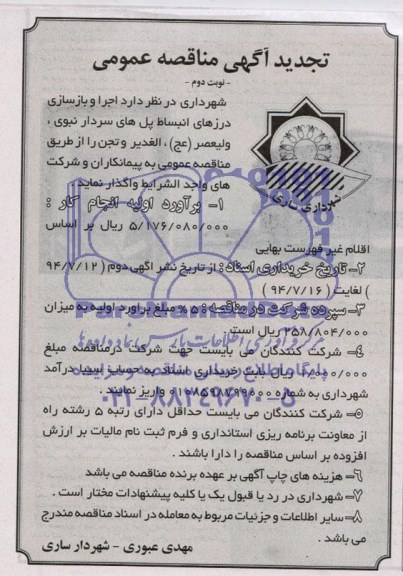 تجدید آگهی مناقصه عمومی
- نوبت دوم -
شهرداری در نظر دارد اجرا و بازسازی
درزهای انبساط پل های سردار نبوی ،
ولیعصر (عج) ، الغدیر و تجن را از طریق
مناقصه عمومی به پیمانکاران و شرکت
های واجد الشرایط واگذار نماید .
شهرداری ساری
۱- برآورد اولیه انجام کار :
۵/۱۷۶/۰۸۰/۰۰۰ ریال بر اساس
اقلام غیر فهرست بهایی
۲- تاریخ خریداری اسناد : از تاریخ نشر آگهی دوم ( ۹۴/۷/۱۲
) لغایت ( ۹۴/۷/۱۶ )
۳- سپرده شرکت در مناقصه : ۵ % مبلغ برآورد اولیه به میزان
۲۵۸/۸۰۴/۰۰۰ ریال است
۴- شرکت کنندگان می بایست جهت شرکت درمناقصه مبلغ
۱/۰۰۰/۰۰۰ ریال بابت خریداری اسناد به حساب سیبا درآمد
شهرداری به شماره واریز نمایند .
۵- شرکت کنندگان می بایست حداقل دارای رتبه ۵ رشته راه
از معاونت برنامه ریزی استانداری و فرم ثبت نام مالیات بر ارزش
افزوده بر اساس مناقصه را دارا باشند .
۶- هزینه های چاپ آگهی بر عهده برنده مناقصه می باشد
۷- شهرداری در رد یا قبول یک یا کلیه پیشنهادات مختار است .
۸- سایر اطلاعات و جزئیات مربوط به معامله در اسناد مناقصه مندرج
می باشد .
مهدی عبوری - شهردار ساری
۰۲۱-۸۸۳۴۹۶۷۰-۵